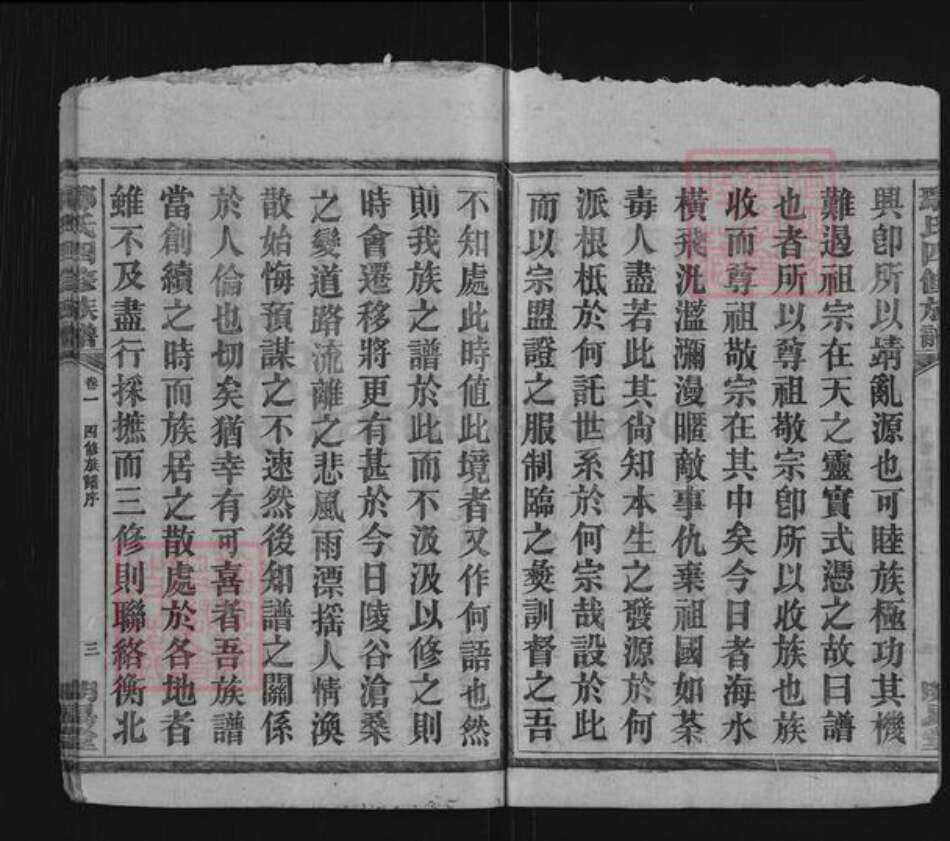 興卽所以靖亂源也可睦族極功其機
難遏祖宗在天之靈實式憑之故曰譜
也者所以尊祖敬宗卽所以收族也族
收而尊祖敬宗在其中矣今日者海水
橫飛氿濫瀰漫暱敵事仇棄祖國如荼
毒人盡若此其尙知本生之發源於何
派根柢於何託世系於何宗哉設於此
而以宗盟證之服制臨之彜訓督之吾
不知處此時值此境者又作何語也然
則我族之譜於此而不汲汲以修之則
時會遷移將更有甚於今日陵谷滄桑
之變道路流離之悲風雨漂搖人情渙
散始悔預謀之不速然後知譜之關係
於人倫也切矣猶幸有可喜者吾族譜
當創續之時而族居之散處於各地者
雖不及盡行採摭而三修則聯絡衡北
氏四修族譜
卷一
四修族譜序
三